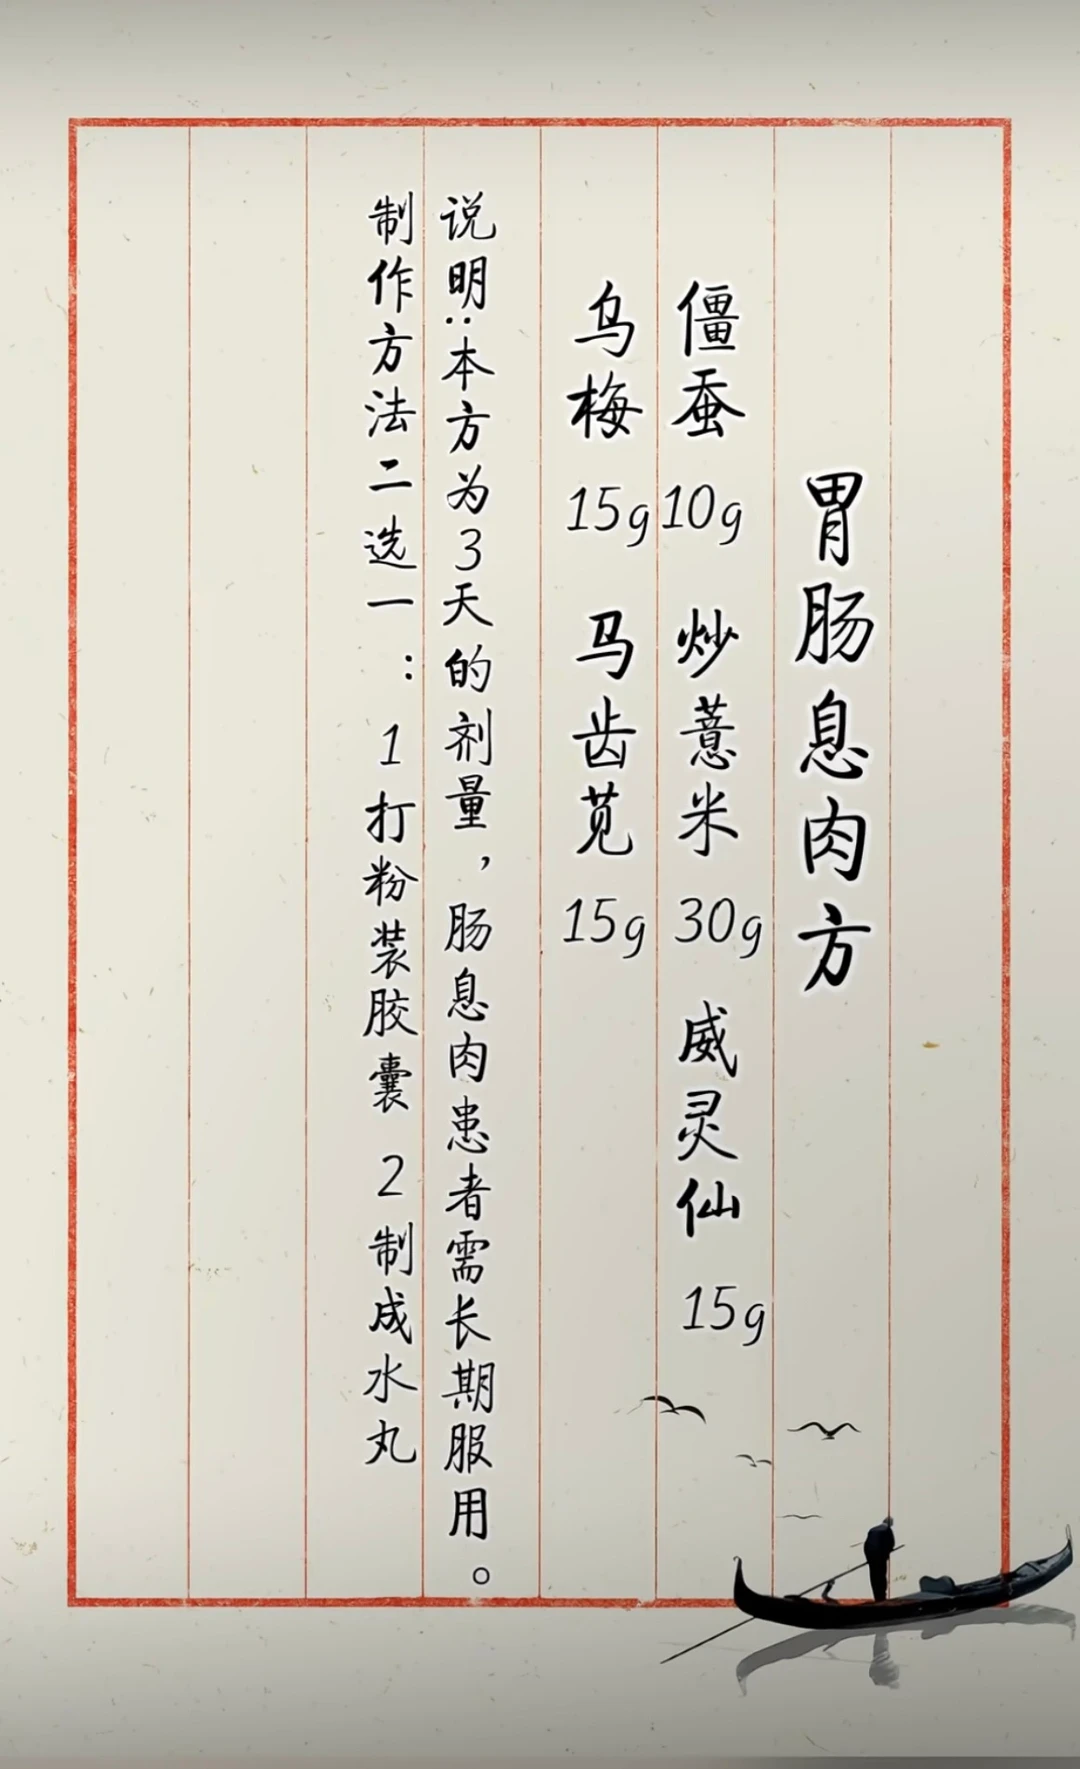 胃肠息肉方
僵蚕 10g 炒薏米 30g 威灵仙 15g
乌梅 15g 马齿苋 15g
说明:本方为3天的剂量，肠息肉患者需长期服用。
制作方法二选一：1打粉装胶囊 2制成水丸